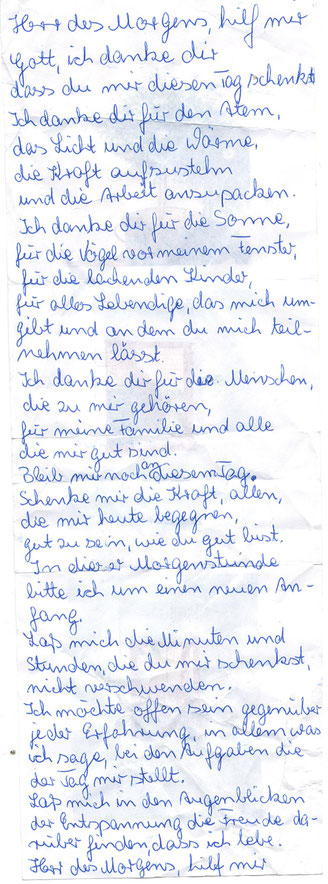 Herr des Morgens, hilf mir
Gott, ich danke dir
dass du mir diesen Tag schenkst
Ich danke dir für den Atem,
das Licht und die Wärme,
die Kraft aufzustehn
und die Arbeit anzupacken.
Ich danke dir für die Sonne,
für die Vögel vor meinem Fenster,
für die lachenden Kinder,
für alles Lebendige, das mich um-
gibt und an dem du mich teil-
nehmen lässt.
Ich danke dir für die Menschen,
die zu mir gehören,
für meine Familie und alle
die mir gut sind.
Bleib mir nach an diesem Tag.
Schenke mir die Kraft, allen,
die mir heute begegnen,
gut zu sein, wie du gut bist.
In dieser Morgenstunde
bitte ich um einen neuen An-
fang.
Laß mich die Minuten und
Stunden, die du mir schenkst,
nicht verschwenden.
Ich möchte offen sein gegenüber
jeder Erfahrung, in allem was
ich sage, bei den Aufgaben die
der Tag mir stellt.
Laß mich in den Augenblicken
der Entspannung die Freude da-
rüber finden, dass ich lebe.
Herr des Morgens, hilf mir